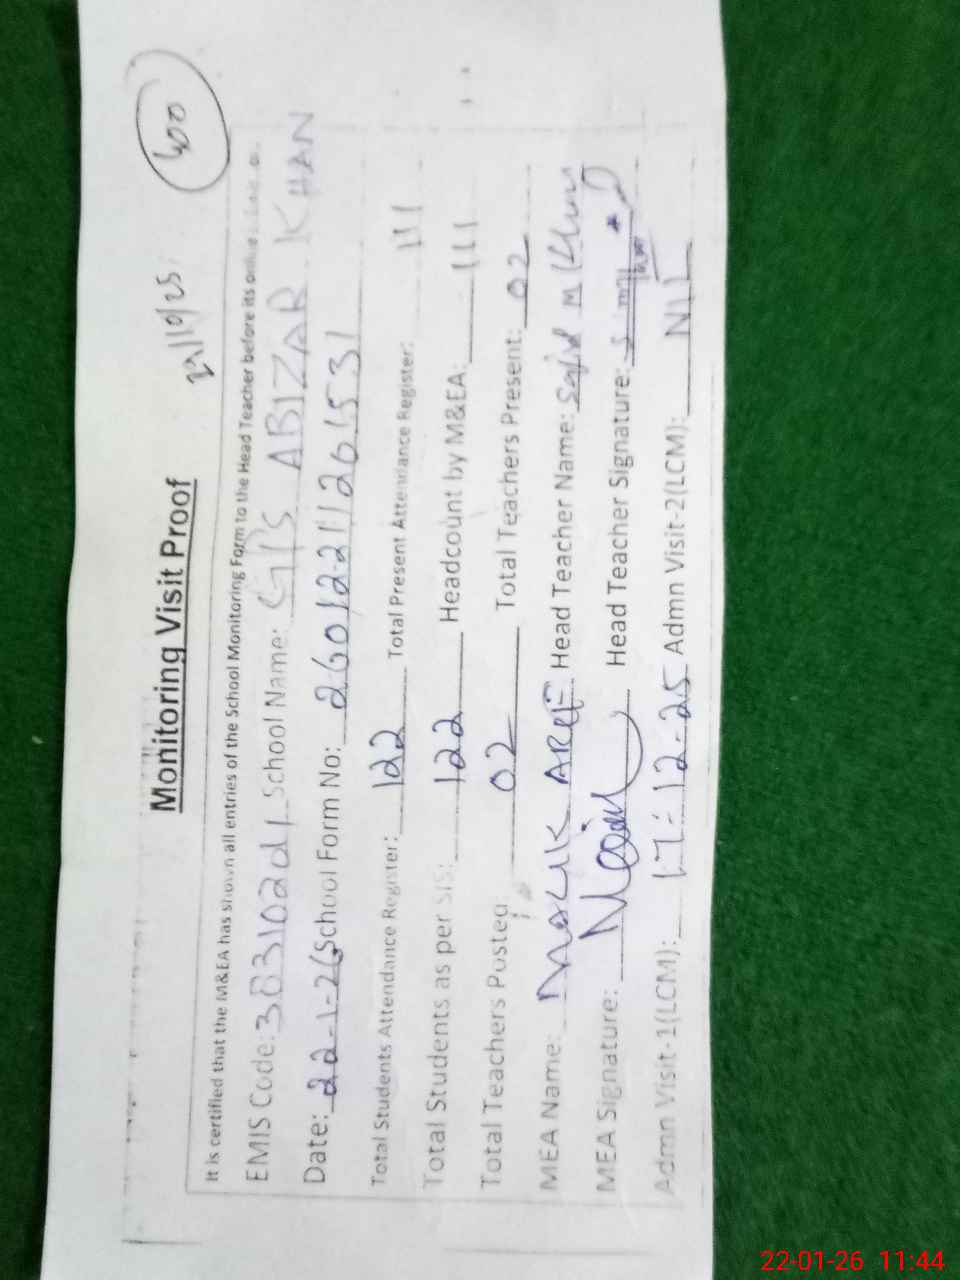 400
Monitoring Visit Proof
It is certified that the M&EA has shown all entries of the School Monitoring Form to the Head Teacher before its online
EMIS Code: School Name: GPS ABIZAR KHAN
Date: 22-1-26 School Form No: 2601221126 15531
Total Students Attendance Register: 122 Total Present Attendance Register: 111
Total Students as per SIS: 122 Headcount by M&EA: 111
Total Teachers Posted 02 Total Teachers Present: 02
MEA Name: MALIK AREF Head Teacher Name:
MEA Signature: Head Teacher Signature:
Admn Visit-1(LCM): 17-12-25 Admn Visit-2(LCM): NIL
22-01-26 11:44